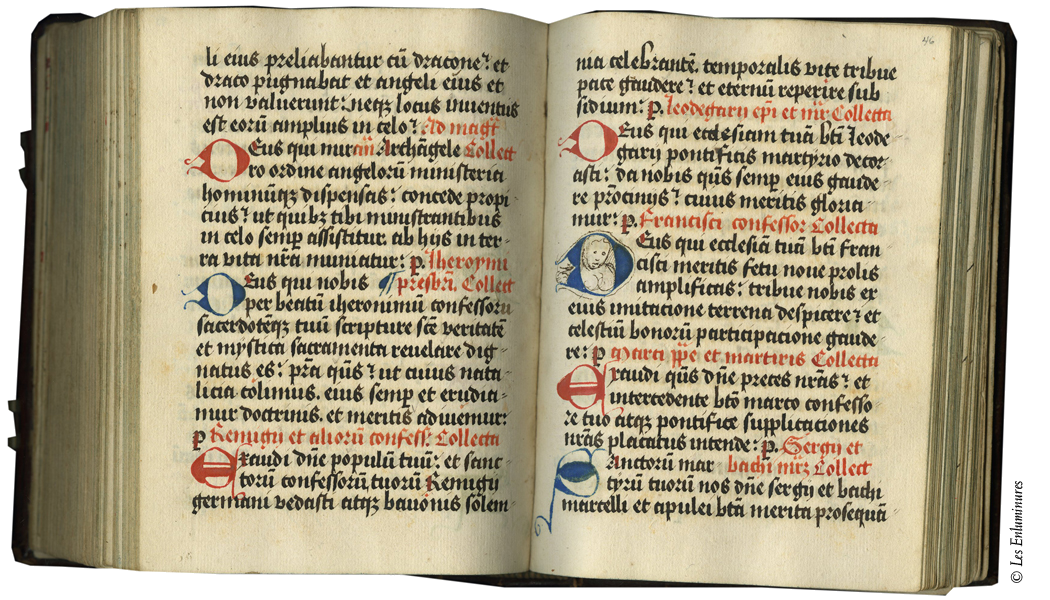 li eius preliabantur cū dracone: et
draco pugnabat et angeli eius et
non valuerunt: neqȝ locus inuentus
est eorū amplius in celo: Ad magͭ
Deus qui mirā Archāgele Collect
ro ordine angelorū ministeria
hominūqȝ dispensas: concede propi
cius: ut quibȝ tibi ministrantibus
in celo semp assistitur. ab hijs in ter-
ra vita nrā muniatur: p. Iheronymi
Deus qui nobis ¶ presbrī. Collect
per beatū iheronimū confessorū
sacerdotēqȝ tuū scripture scē veritatē
et mystica sacramenta reuelare dig-
natus es: prā qūs: ut cuius nata-
licia colimus. eius semp et erudia-
mur doctrinis. et meritis adiuuemur:
p Remigij et aliorū confess: Collecta
Exaudi dne populū tuū: et sanc-
torū confessorū tuorū Remigij
germani vedasti atqȝ bauonis solem-
46
nia celebrantē. temporalis vite tribue
pace gaudere: et eternū reperire sub
sidium: p. leodegarij epi et mr Collecta
Deus qui ecclesiam tuā btī leode-
garij pontificis martyrio decor-
asti: da nobis qūs semp eius gaude-
re pcinijs: cuius meritis gloria
mur: p. Francisci confessor Collecta
Deus qui ecclesiā tuā btī fran
cisci meritis fetu noue prolis
amplificas: tribue nobis ex
eius imitacione terrena despicere: et
celestiū bonorū participacione gaude-
re: p Marci ppe et martiris Collecta
Exaudi qūs dne preces nrās: et
intercedente btō marco confesso-
re tuo atqȝ pontifice supplicaciones
nrās placatus intende: p. Sergij et
Sanctorū mar bachi mrȝ Collect
tyrū tuorū nos dne sergij et bachi
marcelli et apulei btā merita prosequā
© Les Enluminures